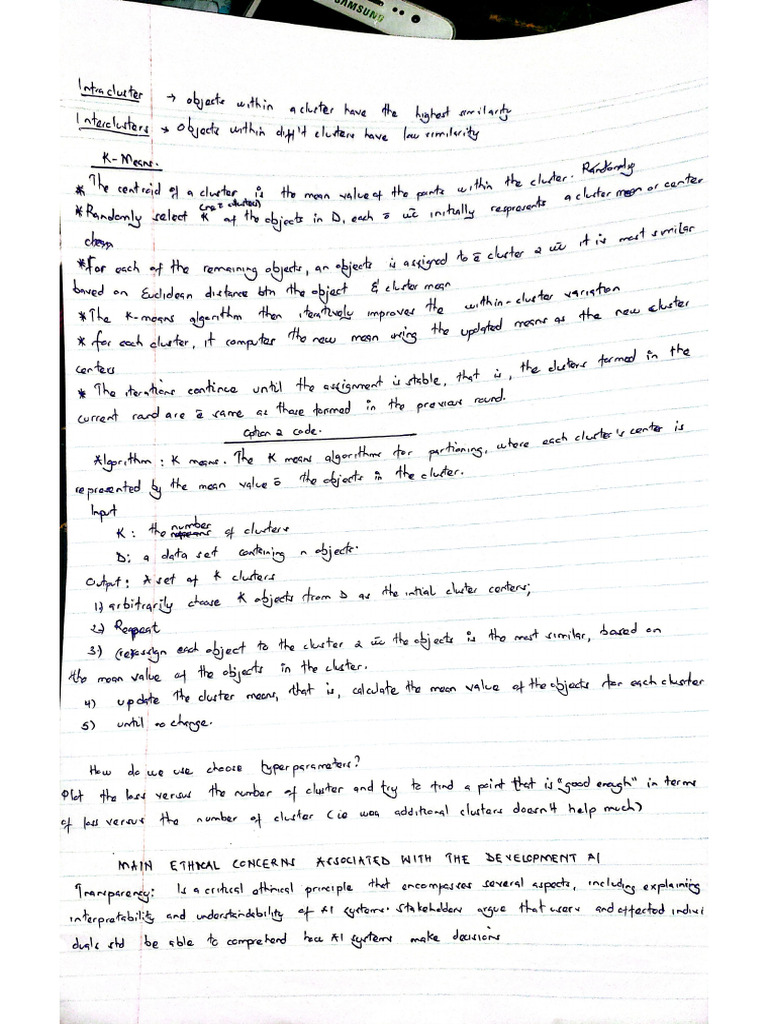 SAMSUNG
Intracluster → objects within a cluster have the highest similarity
Interclusters → objects within diff't clusters have low similarity
K-Means.
* The centroid of a cluster is the mean value of the points within the cluster. Randomly
(no = clusters)
* Randomly select K of the objects in D, each ō w̄c initially respresents a cluster mean or center
chosn
* For each of the remaining objects, an objects is assigned to ē cluster 2 w̄c it is most similar
baved on Euclidean distance btn the object & cluster mean
* The K-means algorithm then iteratively improves the within-cluster variation
* for each cluster, it computes the new mean using the updated means as the new cluster
centers
* The iterations continue until the assignment is stable, that is, the clusters formed in the
current round are ē same as those formed in the previous round.
Option 2 code.
Algorithm : K means. The K means algorithms for partioning, where each cluster's center is
represented by the mean value ō the objects in the cluster.
Input
K : the number of clusters
D: a data set containing n objects.
Output: A set of K clusters
1) arbitrarily choose K objects from D as the intial cluster centers;
2) Repeat
3) (re)assign each object to the cluster 2 w̄c the objects is the most similar, based on
the mean value of the objects in the cluster.
4) update the cluster means, that is, calculate the mean value of the objects for each cluster
5) until no change.
How do we use choose hyperparameters?
Plot the loss versus the number of cluster and try to find a point that is "good enough" in terms
of loss versus the number of cluster (ie additional clusters doesn't help much)
MAIN ETHICAL CONCERNS ASSOCIATED WITH THE DEVELOPMENT AI
Transparency: Is a critical ethical principle that encompasses several aspects, including explaining
interpretability and understandability of AI systems. Stakeholders argue that users and affected indivi
duals std be able to comprehend how AI systems make decisions